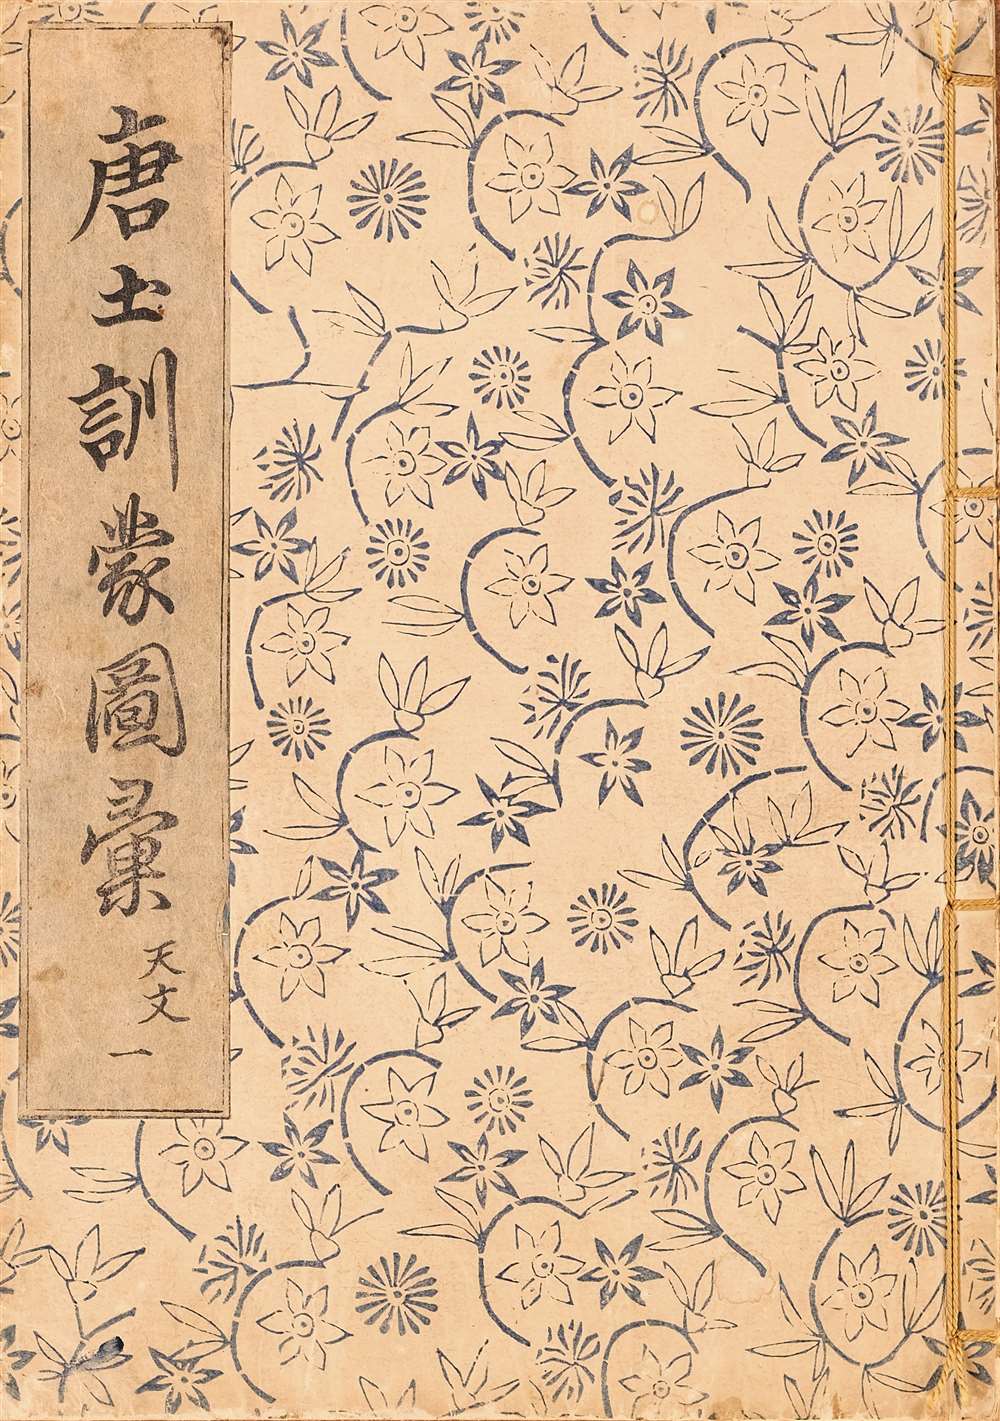 唐土訓蒙圖彙
天文
一